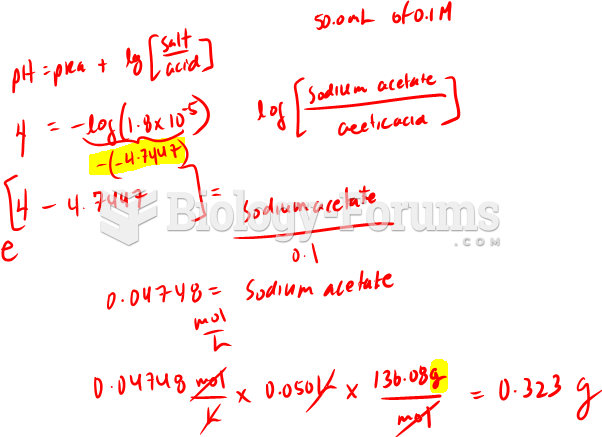 50.0mL of 0.1M
pH = pka + log [salt/acid]
4 = -log(1.8x10^-5) log [sodium acetate/acetic acid]
-(-4.7447)
e^[4 - 4.7447] = sodium acetate/0.1
Biology-Forums
.COM
0.04748 mol/L = Sodium acetate
0.04748 mol/L x 0.050L x 136.08g/mol = 0.323 g